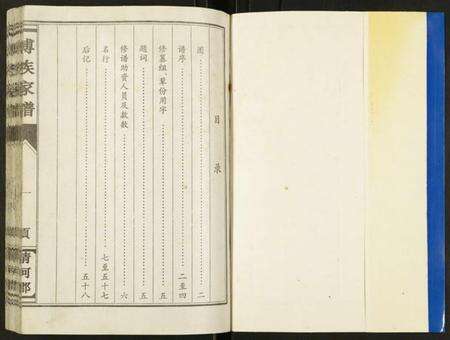 目录
图……二
谱序……二至四
修纂组、辈份用字……五
题词……五
修谱助资人员及款数……六
名行……七至五十七
后记……五十八
傅族家谱
一页
清河郡